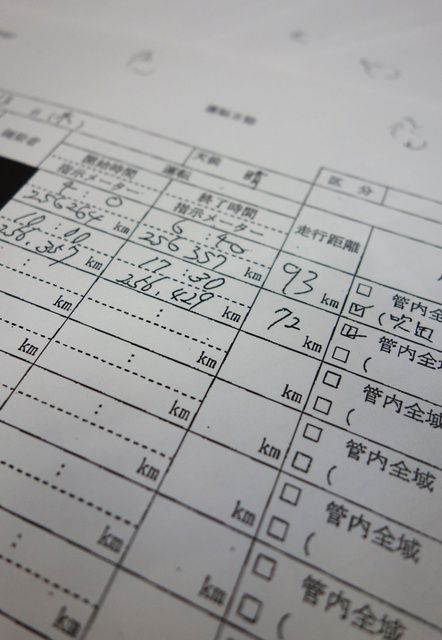 天候 晴
区分
運転
開始時間
指示メーター
終了時間
指示メーター
走行距離
4:0
256264 km
6:40
256357 km
93 km
□ 管内全
☑ (吹田
256,357 km
17:30
256,429 km
72 km
☑ 管内全域
□ (
: km
: km
km
□ 管内全域
□ (
: km
: km
km
□ 管内全域
□ (
: km
: km
km
□ 管内全域
□ (
: km
km
□ 管内全域
□ (